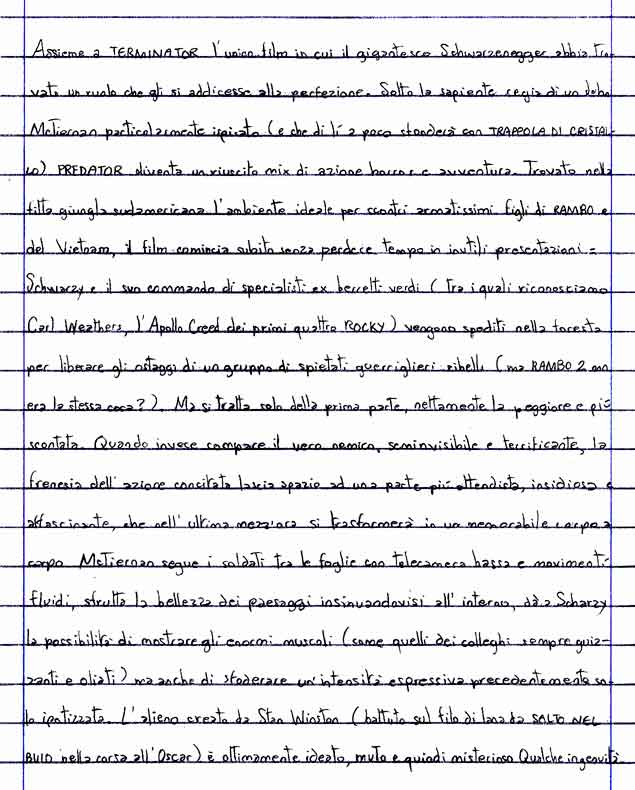 Assieme a TERMINATOR l'unico film in cui il gigantesco Schwarzenegger abbia tro-
vato un ruolo che gli si addicesse alla perfezione. Sotto la sapiente regia di un John
McTiernan particolarmente ispirato (e che di lì a poco sfonderà con TRAPPOLA DI CRISTAL-
LO) PREDATOR diventa un riuscito mix di azione horror e avventura. Trovato nella
fitta giungla sudamericana l'ambiente ideale per scontri armatissimi figli di RAMBO e
del Vietnam, il film comincia subito senza perdere tempo in inutili presentazioni:
Schwarzy e il suo commando di specialisti ex berretti verdi (tra i quali riconosciamo
Carl Weathers, l'Apollo Creed dei primi quattro ROCKY) vengono spediti nella foresta
per liberare gli ostaggi di un gruppo di spietati guerriglieri ribelli (ma RAMBO 2 non
era la stessa cosa?). Ma si tratta solo della prima parte, nettamente la peggiore e più
scontata. Quando invece compare il vero nemico, seminvisibile e terrificante, la
frenesia dell'azione concitata lascia spazio ad una parte più attendista, insidiosa e
affascinante, che nell'ultima mezz'ora si trasformerà in un memorabile corpo a
corpo McTiernan segue i soldati tra le foglie con telecamera bassa e movimenti
fluidi, sfrutta la bellezza dei paesaggi insinuandovisi all'interno, dà a Scharzy
la possibilità di mostrare gli enormi muscoli (come quelli dei colleghi sempre guiz-
zanti e oliati) ma anche di sfoderare un'intensità espressiva precedentemente so-
lo ipotizzata. L'alieno creato da Stan Winston (battuto sul filo di lana da SALTO NEL
BUIO nella corsa all'Oscar) è ottimamente ideato, muto e quindi misterioso Qualche ingenuità